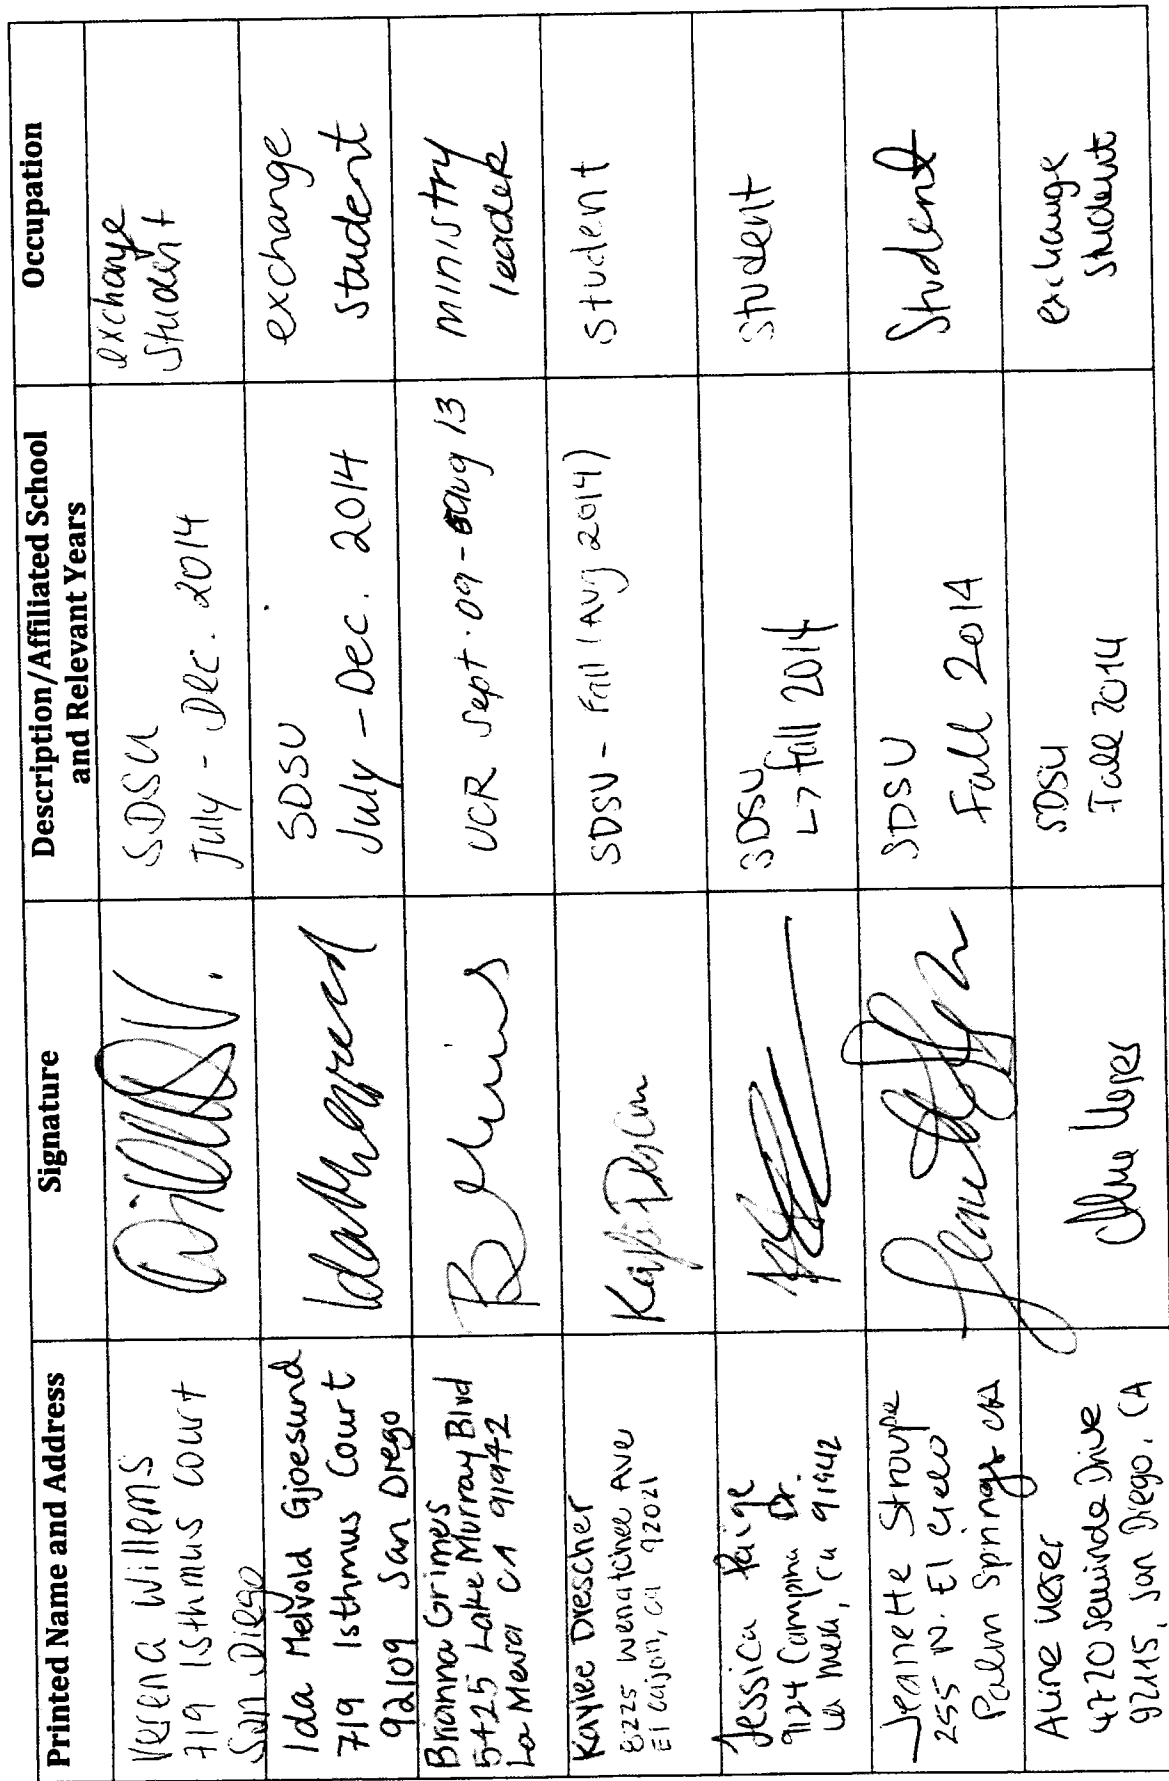 Printed Name and Address
Signature
Description/Affiliated School
and Relevant Years
Occupation
Verena Willems
719 Isthmus Court
San Diego
SDSU
July - Dec. 2014
exchange
student
Ida Melvold Gjoesund
719 Isthmus Court
92109 San Diego
SDSU
July - Dec. 2014
exchange
student
Brianna Grimes
5425 Lake Murray Blvd
La Mesa CA 91942
UCR Sept. 09 - Aug 13
ministry
leader
Kaylee Drescher
8225 Wenatchee Ave
El Cajon, ca 92021
SDSU - Fall (Aug 2014)
student
Jessica Paige
9124 Campina Dr.
La Mesa, Ca 91942
SDSU
↳ Fall 2014
student
Jeanette Stroupe
255 N. El Cielo
Palm Springs CA
SDSU
Fall 2014
Student
4720 Seminole Drive
92115, San Diego, CA
SDSU
Fall 2014
exchange
student